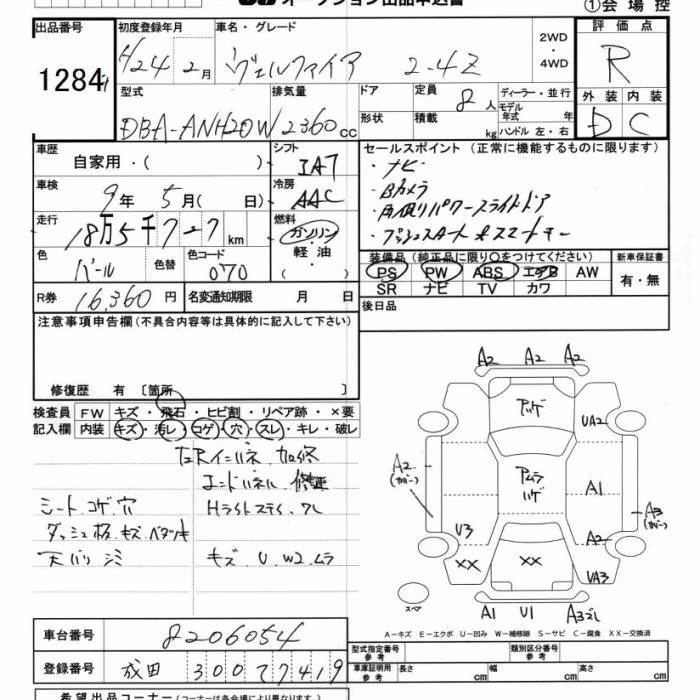 オークション出品申込書
①会場控
出品番号 初度登録年月 車名・グレード 2WD・4WD 評価点
1284 H24年2月 ヴェルファイア 2.4Z R
型式 排気量 ドア 定員 ディーラー・並行 外装 内装
DBA-ANH20W 2360cc 形状 8人 積載 kg モデル年式 年 ハンドル 左・右 D C
車歴 自家用・( ) シフト IA7 セールスポイント (正常に機能するものに限ります)
車検 9年5月( 日) 冷房 AAC
・ナビ
・Bカメラ
走行 18万5千727km 燃料 ガソリン・軽油・( )
・両側パワースライドドア
・プッシュスタート スマートキー
色 パール 色替 色コード 070
装備品 (純正品に限り〇をつけてください) 新車保証書
PS PW ABS エアB AW 有・無
SR ナビ TV カワ
R券 16,360円 名変通知期限 月 日
後日品
注意事項申告欄(不具合内容等は具体的に記入して下さい)
修復歴 有 〔箇所 〕
検査員 FW キズ・飛石・ヒビ割・リペア跡・×要
記入欄 内装 キズ・汚レ・コゲ・穴・スレ・キレ・破レ
左Rインパネ 加修
エンドパネル 修正
シート コゲ 穴 Hライトステイ
ダッシュ板 キズ ベタツキ
天バリ シミ キズ U W2 ムラ
A2 A2 A2
アルゲ
UA2
A2
(カバー)
アムラ
ハゲ
A1
A3
(カバー)
U3
A2
XX XX
UA3
スペア
A1 U1 A3
A-キズ E-エクボ U-凹み W-補修跡 S-サビ C-腐食 XX-交換済
車台番号 8206054
型式指定番号 参考 類別区分番号 参考
登録番号 成田 300 7419
車庫証明用 参考 長さ 幅 高さ
希望出品コーナー